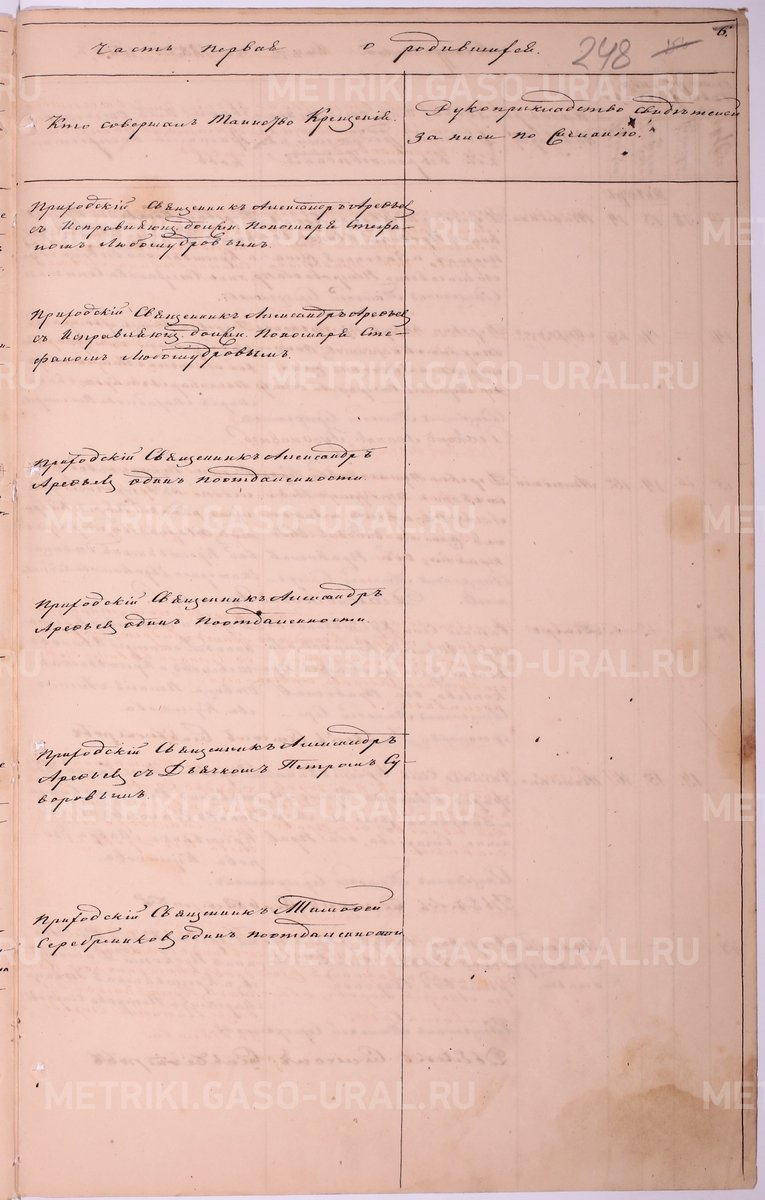 6.
Часть первая о родившихся. 248
Кто совершалъ Таинство Крещенія.
Рукоприкладство свидѣтелей
записи по желанію.
Приходскій Священникъ Александръ Арефьевъ
съ Исправляющ. должн. Пономаря Стефа-
номъ Любомудровымъ.
Приходскій Священникъ Александръ Арефьевъ
съ Исправляющ. должн. Пономаря Сте-
фаномъ Любомудровымъ.
Приходскій Священникъ Александръ
Арефьевъ одинъ поотдаленности.
Приходскій Священникъ Александръ
Арефьевъ одинъ поотдаленности.
Приходскій Священникъ Александръ
Арефьевъ съ Дьячкомъ Петромъ Су-
воровымъ.
Приходскій Священникъ Тимофей
Серебренниковъ одинъ поотдаленности
METRIKI.GASO-URAL.RU